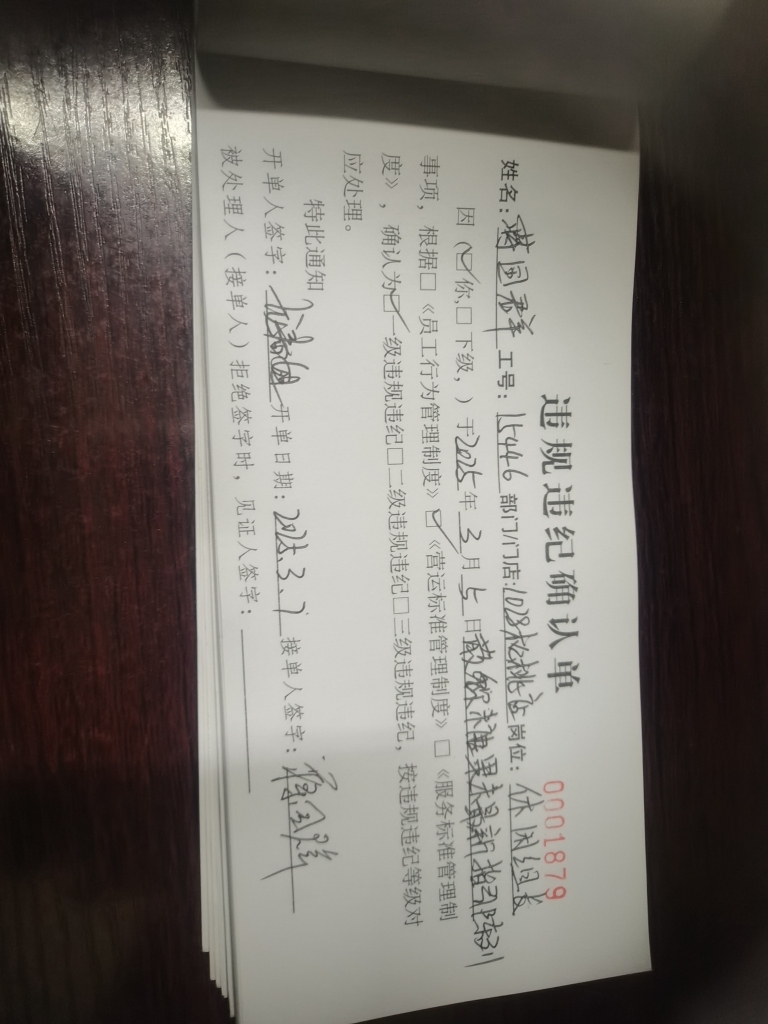 违规违纪确认单
0001879
姓名：蒋国群 工号：15446 部门/门店：1028松桃店 岗位：休闲组长
因（☑你，□下级，）于2025年3月5日散称未按最新指引陈列
事项，根据□《员工行为管理制度》☑《营运标准管理制度》□《服务标准管理制
度》，确认为☑一级违规违纪□二级违规违纪□三级违规违纪，按违规违纪等级对
应处理。
特此通知
开单人签字： 开单日期：2025.3.7 接单人签字：蒋国群
被处理人（接单人）拒绝签字时，见证人签字：